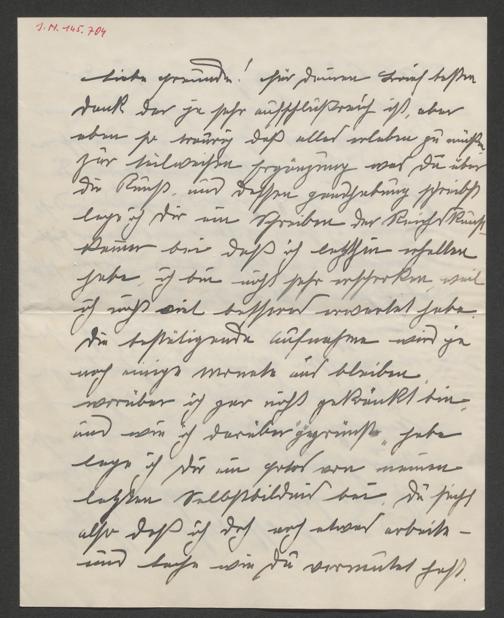 J.N. 145.704
Liebe Freunde! Für deinen Brief besten
Dank der ja sehr aufschlußreich ist, aber
eben so traurig daß alles erleben zu müssen.
Zur teilweisen Ergänzung was Du über
die Kunst und dessen schreibst
lege ich Dir ein Schreiben der Reichskunst-
kammer bei daß ich letzthin erhalten
habe, ich bin nicht sehr erschrocken weil
ich nicht viel besseres erwartet habe.
Die bestätigende Aufnahme wird ja
noch einige Monate aus bleiben,
worüber ich gar nicht gekränkt bin,
und wie ich darüber "gegrinst" habe
lege ich Dir ein Foto von meinen
letzten Selbstbildnis bei. Du siehst
also daß ich doch noch etwas arbeite –
und lache wie Du vermutet hast.